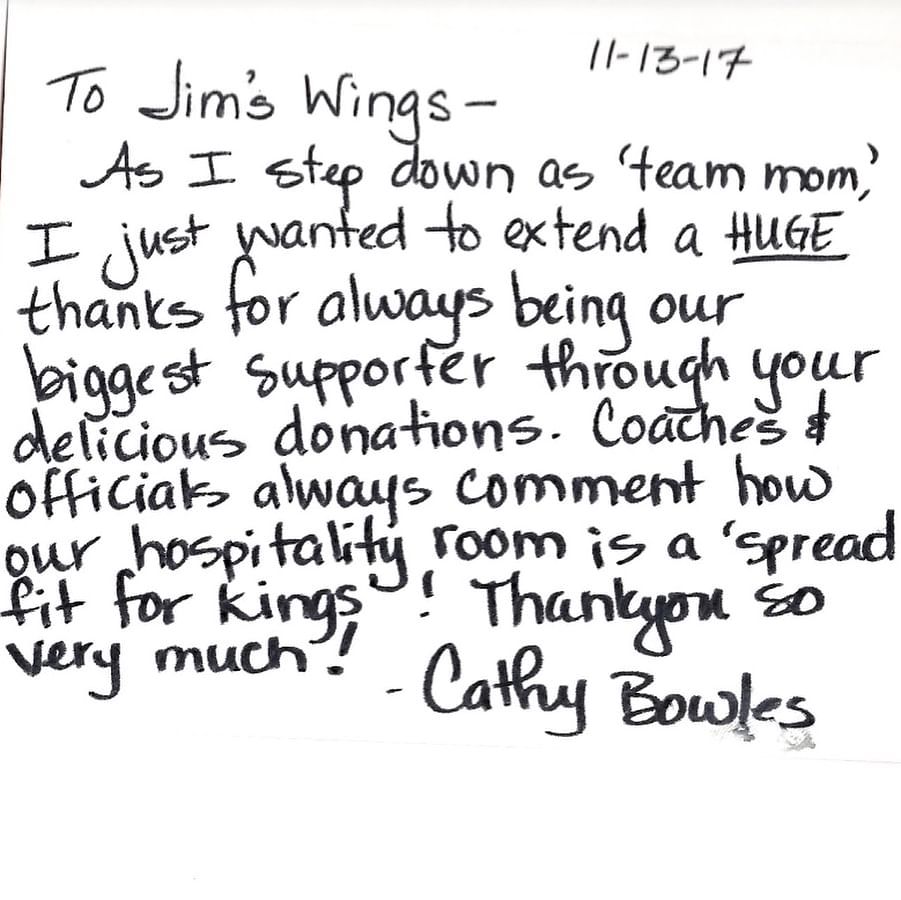 11-13-17
To Jim's Wings-
As I step down as 'team mom,'
I just wanted to extend a HUGE
thanks for always being our
biggest supporter through your
delicious donations. Coaches &
officials always comment how
our hospitality room is a 'spread
fit for kings'! Thankyou so
very much!
- Cathy Bowles